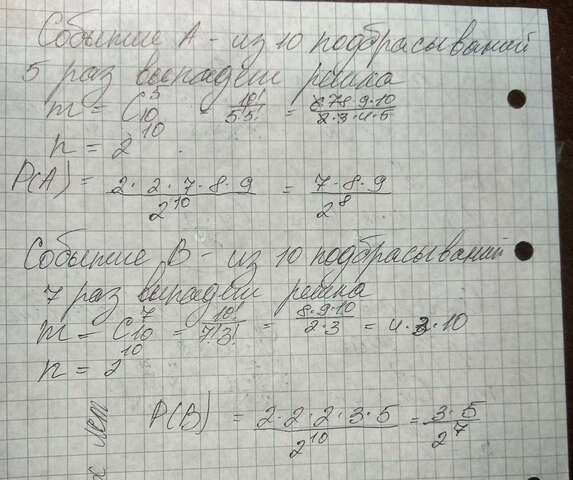 Событие А - из 10 подбрасываний
5 раз выпадет решка
m = C₁₀⁵ = 10!/5!5! = 6·7·8·9·10/2·3·4·5
n = 2¹⁰
P(A) = 2·2·7·8·9/2¹⁰ = 7·8·9/2⁸
Событие В - из 10 подбрасываний
7 раз выпадет решка
m = C₁₀⁷ = 10!/7!3! = 8·9·10/2·3 = 4·3·10
n = 2¹⁰
P(B) = 2·2·2·3·5/2¹⁰ = 3·5/2⁷
х лет